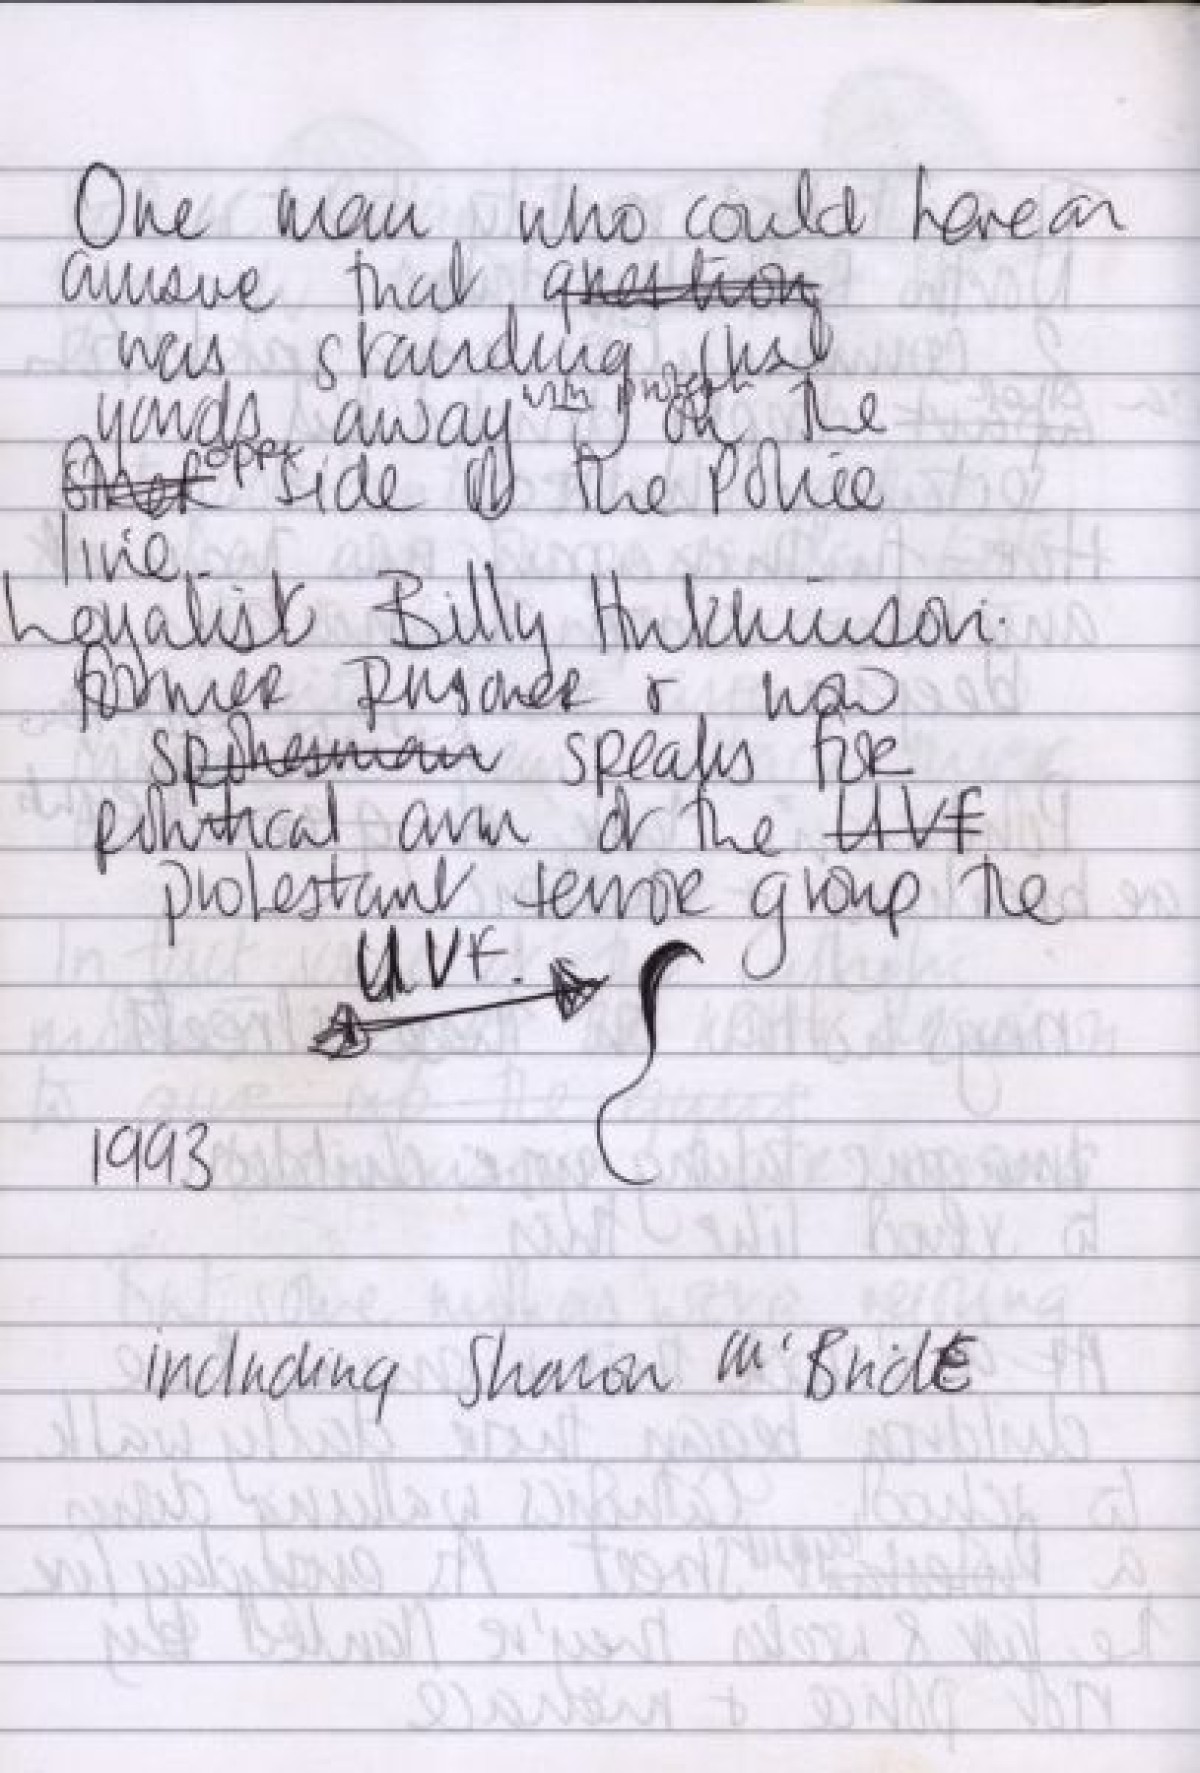 One man who could have an
answer that question
was standing just
yards away with protesters on the
other oppo side of the Police
line.
Loyalist Billy Hutchinson.
former prisoner + now
spokesman speaks for
political arm of the UVF
protestant terror group the
UVF.
1993
including Sharon McBride